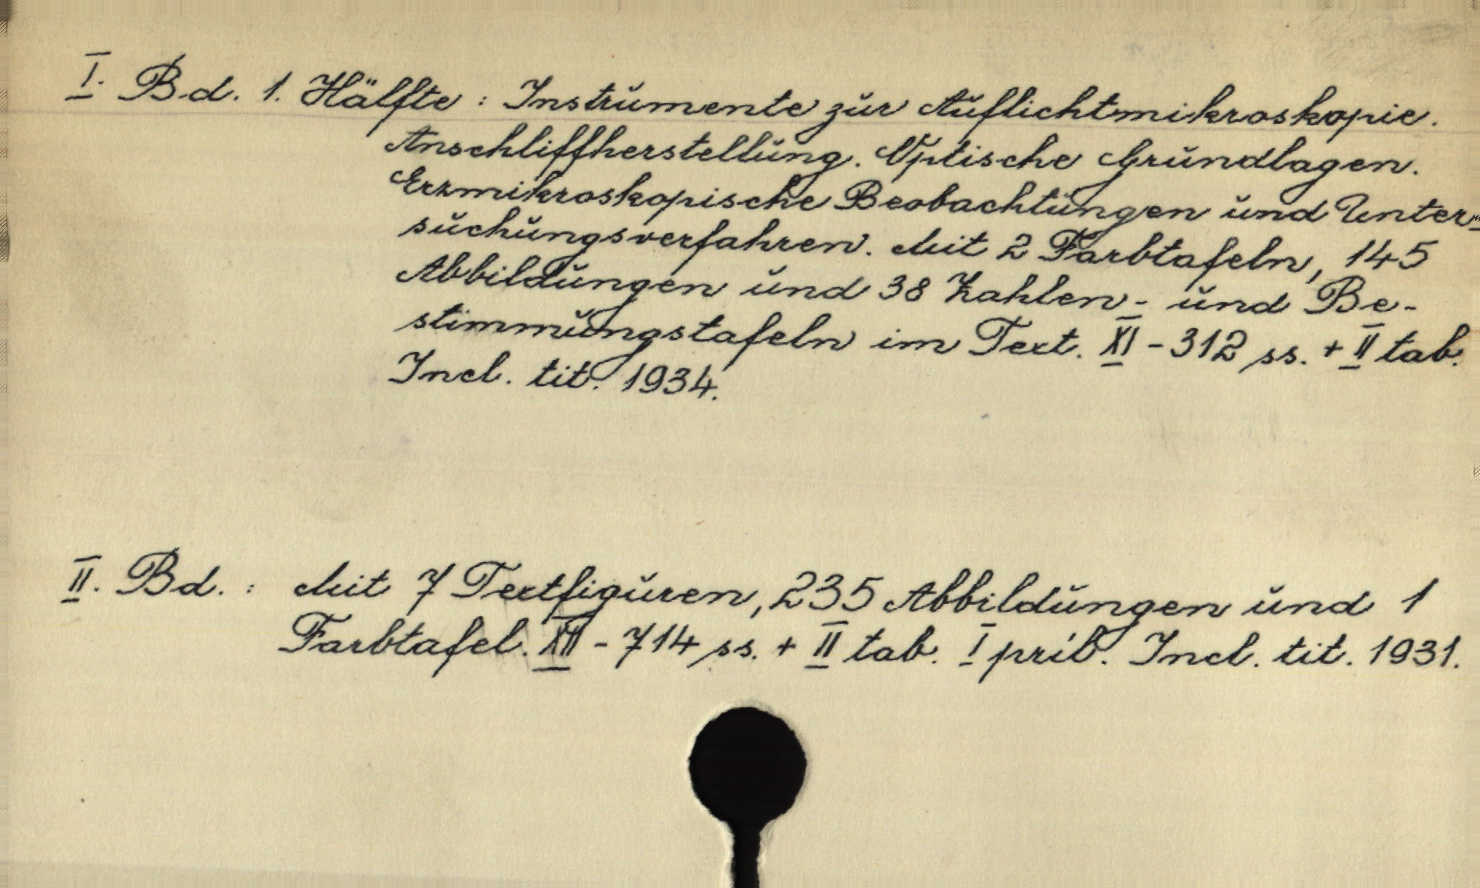 I. Bd. 1. Hälfte : Instrumente zur Auflichtmikroskopie.
Anschliffherstellung. Optische Grundlagen.
Erzmikroskopische Beobachtungen und Unter-
suchungsverfahren. Mit 2 Farbtafeln, 145
Abbildungen und 38 Zahlen- und Be-
stimmungstafeln im Text. XI - 312 ss. + II tab.
Incl. tit. 1934.
II. Bd. : Mit 7 Textfiguren, 235 Abbildungen und 1
Farbtafel. XII - 714 ss. + II tab. I pril. Incl. tit. 1931.